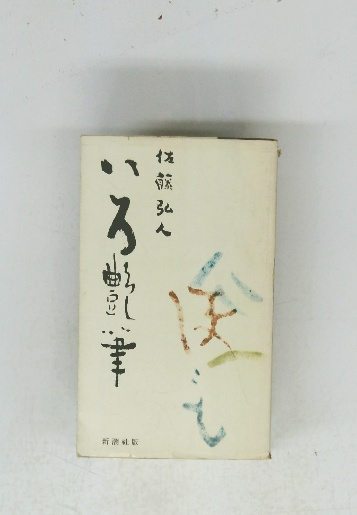 佐藤弘人
いろ艷筆
新潮社版